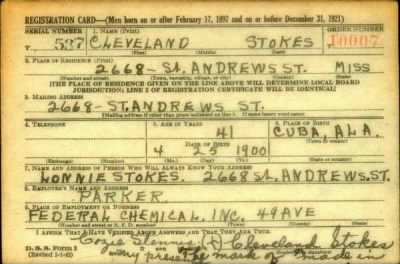 REGISTRATION CARD—(Men born on or after February 17, 1897 and on or before December 31, 1921)
SERIAL NUMBER 1. NAME (Print) ORDER NUMBER
537 CLEVELAND STOKES 10007
(First) (Middle) (Last)
2. PLACE OF RESIDENCE (Print)
2668-St. ANDREWS ST. MISS
(Number and street) (Town, township, village, or city) (County) (State)
[THE PLACE OF RESIDENCE GIVEN ON THE LINE ABOVE WILL DETERMINE LOCAL BOARD
JURISDICTION; LINE 2 OF REGISTRATION CERTIFICATE WILL BE IDENTICAL]
3. MAILING ADDRESS
2668-ST. ANDREWS ST.
[Mailing address if other than place indicated on line 2. If same insert word same]
4. TELEPHONE 5. AGE IN YEARS 6. PLACE OF BIRTH
41 CUBA, ALA.
DATE OF BIRTH
4 25 1900
(Exchange) (Number) (Mo.) (Day) (Yr.) (State or country)
7. NAME AND ADDRESS OF PERSON WHO WILL ALWAYS KNOW YOUR ADDRESS
LONNIE STOKES. 2668 St. ANDREWS. ST.
8. EMPLOYER'S NAME AND ADDRESS
PARKER.
9. PLACE OF EMPLOYMENT OR BUSINESS
FEDERAL CHEMICAL. INC. 49 AVE
(Number and street or R. F. D. number) (Town) (County) (State)
I AFFIRM THAT I HAVE VERIFIED ABOVE ANSWERS AND THAT THEY ARE TRUE.
(X) Cleveland Stokes
D. S. S. FORM 1 mark made in
(Revised 1-1-42) my presence